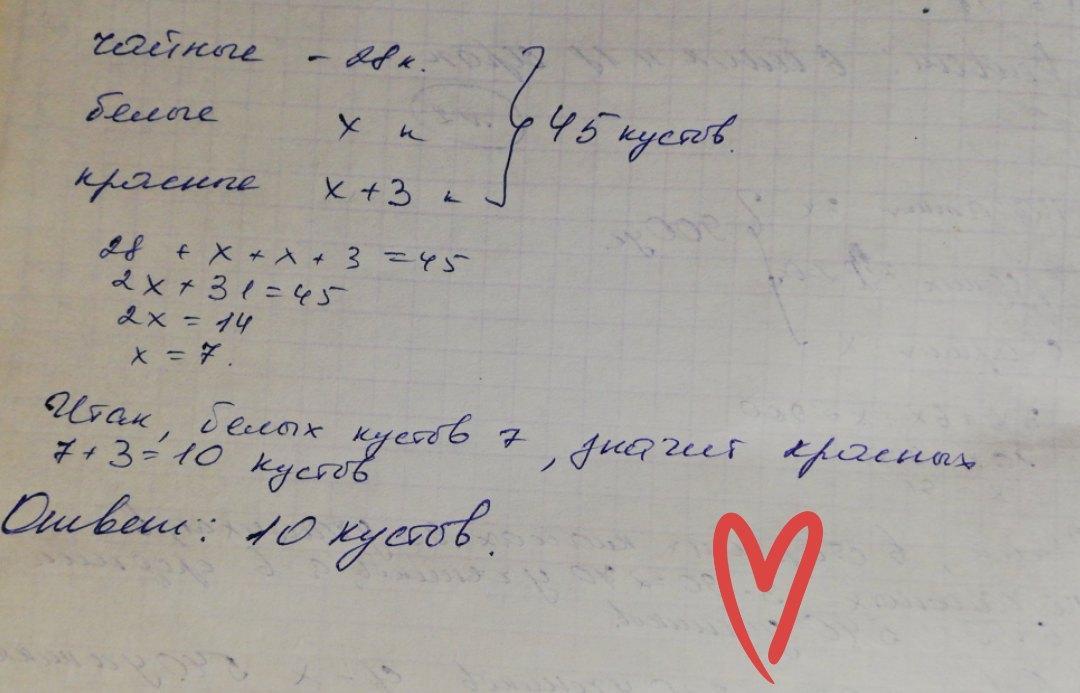 чайные - 28 к.
белые x к
красные x + 3 к
45 кустов.
28 + x + x + 3 = 45
2x + 31 = 45
2x = 14
x = 7.
Итак, белых кустов 7, значит красных
7 + 3 = 10 кустов
Ответ: 10 кустов.